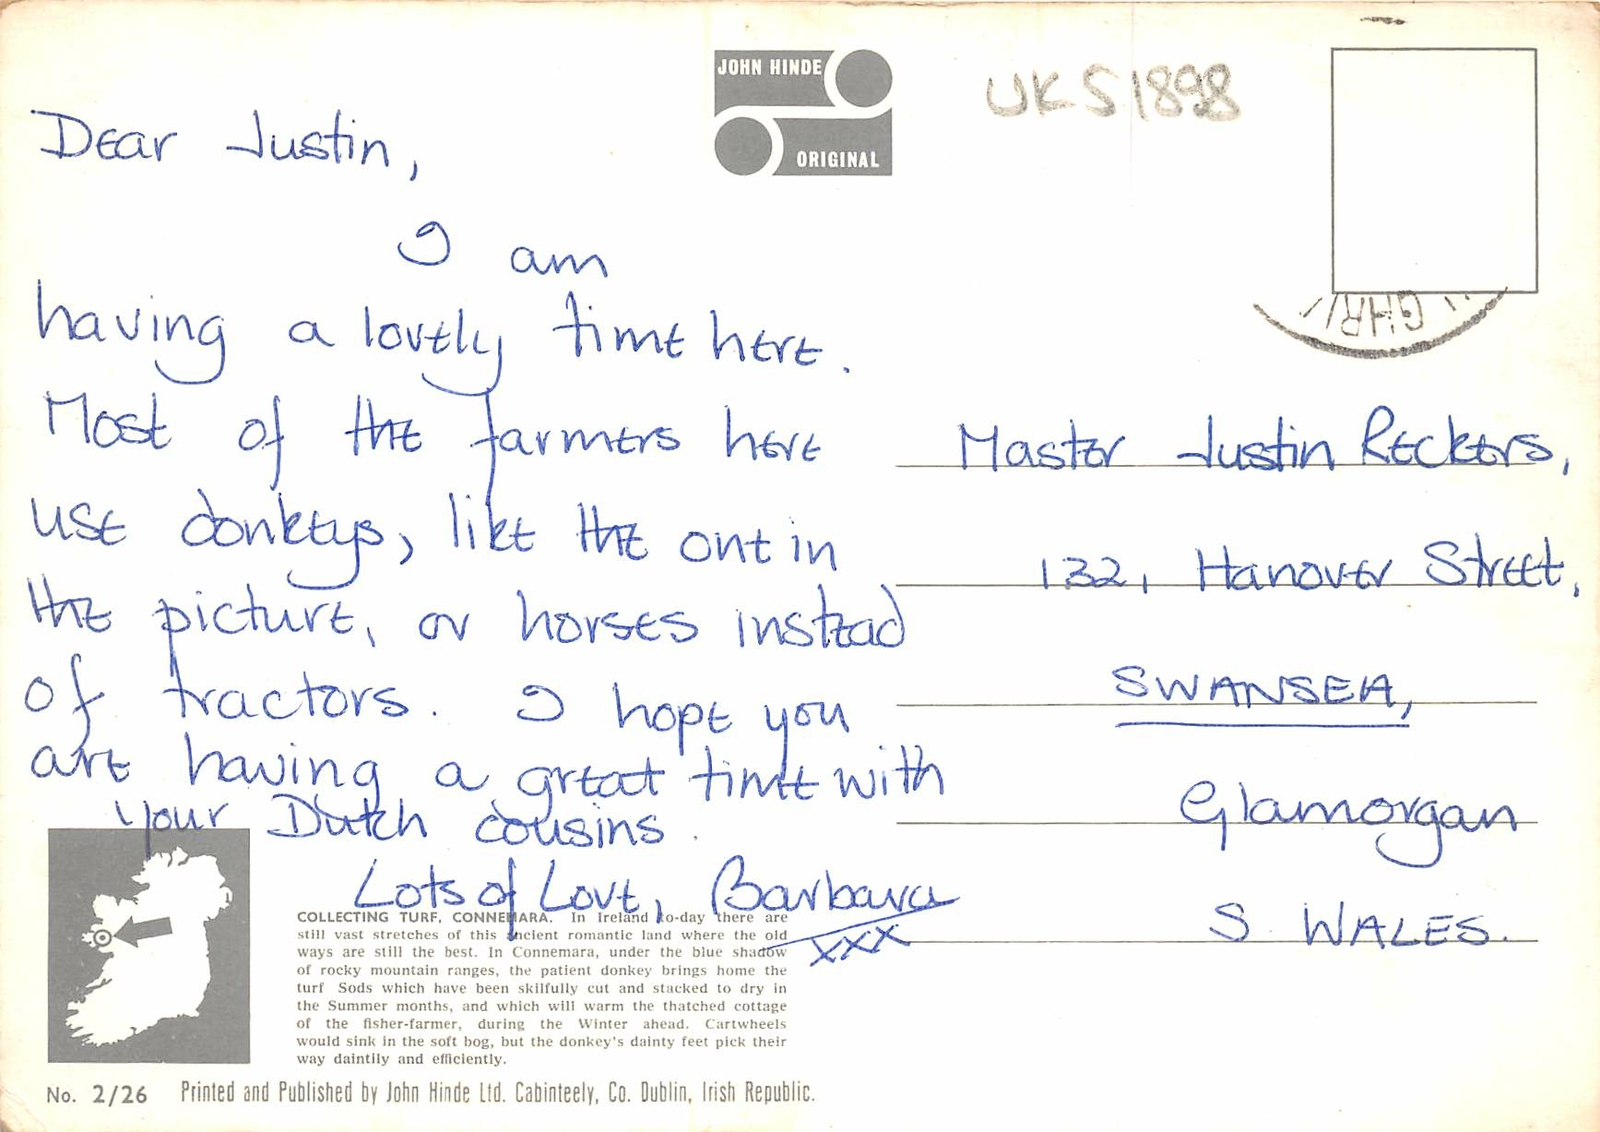 JOHN HINDE
ORIGINAL
UKS1898
Dear Justin,
I am
having a lovely time here.
Most of the farmers here
use donkeys, like the one in
the picture, or horses instead
of tractors. I hope you
are having a great time with
your Dutch cousins.
Lots of Love, Barbara
xxx
Master Justin Reckers,
132, Hanover Street,
SWANSEA,
Glamorgan
S WALES.
COLLECTING TURF, CONNEMARA. In Ireland to-day there are
still vast stretches of this ancient romantic land where the old
ways are still the best. In Connemara, under the blue shadow
of rocky mountain ranges, the patient donkey brings home the
turf Sods which have been skilfully cut and stacked to dry in
the Summer months, and which will warm the thatched cottage
of the fisher-farmer, during the Winter ahead. Cartwheels
would sink in the soft bog, but the donkey's dainty feet pick their
way daintily and efficiently.
No. 2/26 Printed and Published by John Hinde Ltd. Cabinteely, Co. Dublin, Irish Republic.